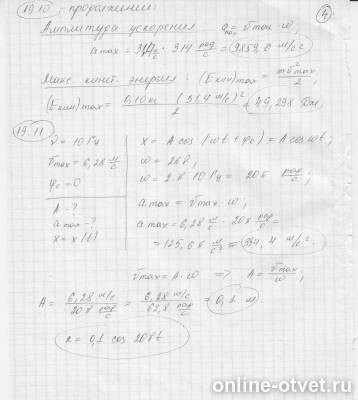 19.10 - продолжение.
4
Амплитуда ускорения a max = υmax · ω,
a max = 31,4 м/с · 314 рад/с = 9859,6 м/с²
Макс. кинет. энергия: (Eкин)max = mυ²max / 2,
(Eкин)max = 0,10 кг (31,4 м/с)² / 2 = 49,298 Дж
19.11
ν = 10 Гц
υmax = 6,28 м/с
φ₀ = 0
A - ?
a max - ?
x = x(t)
x = A cos(ωt + φ₀) = A cos ωt;
ω = 2πν,
ω = 2·π·10 Гц = 20π рад/с
a max = υmax · ω;
a max = 6,28 м/с · 20π рад/с =
= 125,6π м/с² = 394,4 м/с².
υmax = A·ω => A = υmax / ω,
A = 6,28 м/с / 20π рад/с = 6,28 м/с / 62,8 рад/с = 0,1 м.
x = 0,1 cos 20πt
online-otvet.ru